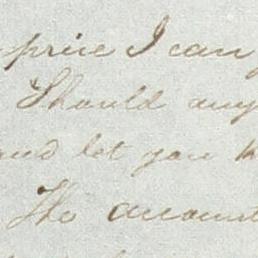 price I can
Should any
and let you
The amount